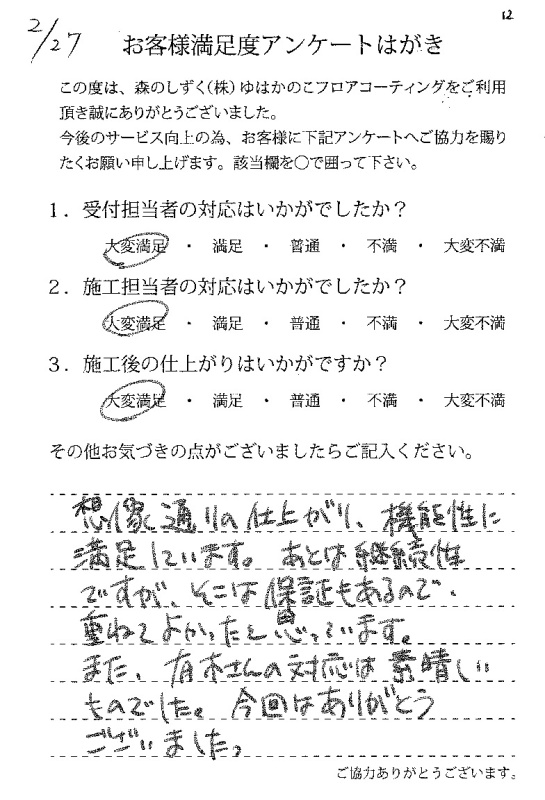 12
2/27
お客様満足度アンケートはがき
この度は、森のしずく(株)ゆはかのこフロアコーティングをご利用
頂き誠にありがとうございました。
今後のサービス向上の為、お客様に下記アンケートへご協力を賜り
たくお願い申し上げます。該当欄を○で囲って下さい。
1．受付担当者の対応はいかがでしたか？
大変満足 ・ 満足 ・ 普通 ・ 不満 ・ 大変不満
2．施工担当者の対応はいかがでしたか？
大変満足 ・ 満足 ・ 普通 ・ 不満 ・ 大変不満
3．施工後の仕上がりはいかがですか？
大変満足 ・ 満足 ・ 普通 ・ 不満 ・ 大変不満
その他お気づきの点がございましたらご記入ください。
想像通りの仕上がり、機能性に
満足しています。あとは継続性
ですが、そこは保証もあるので、
重ねてよかったと思っています。
また、有木さんの対応は素晴しい
ものでした。今回はありがとう
ございました。
ご協力ありがとうございます。